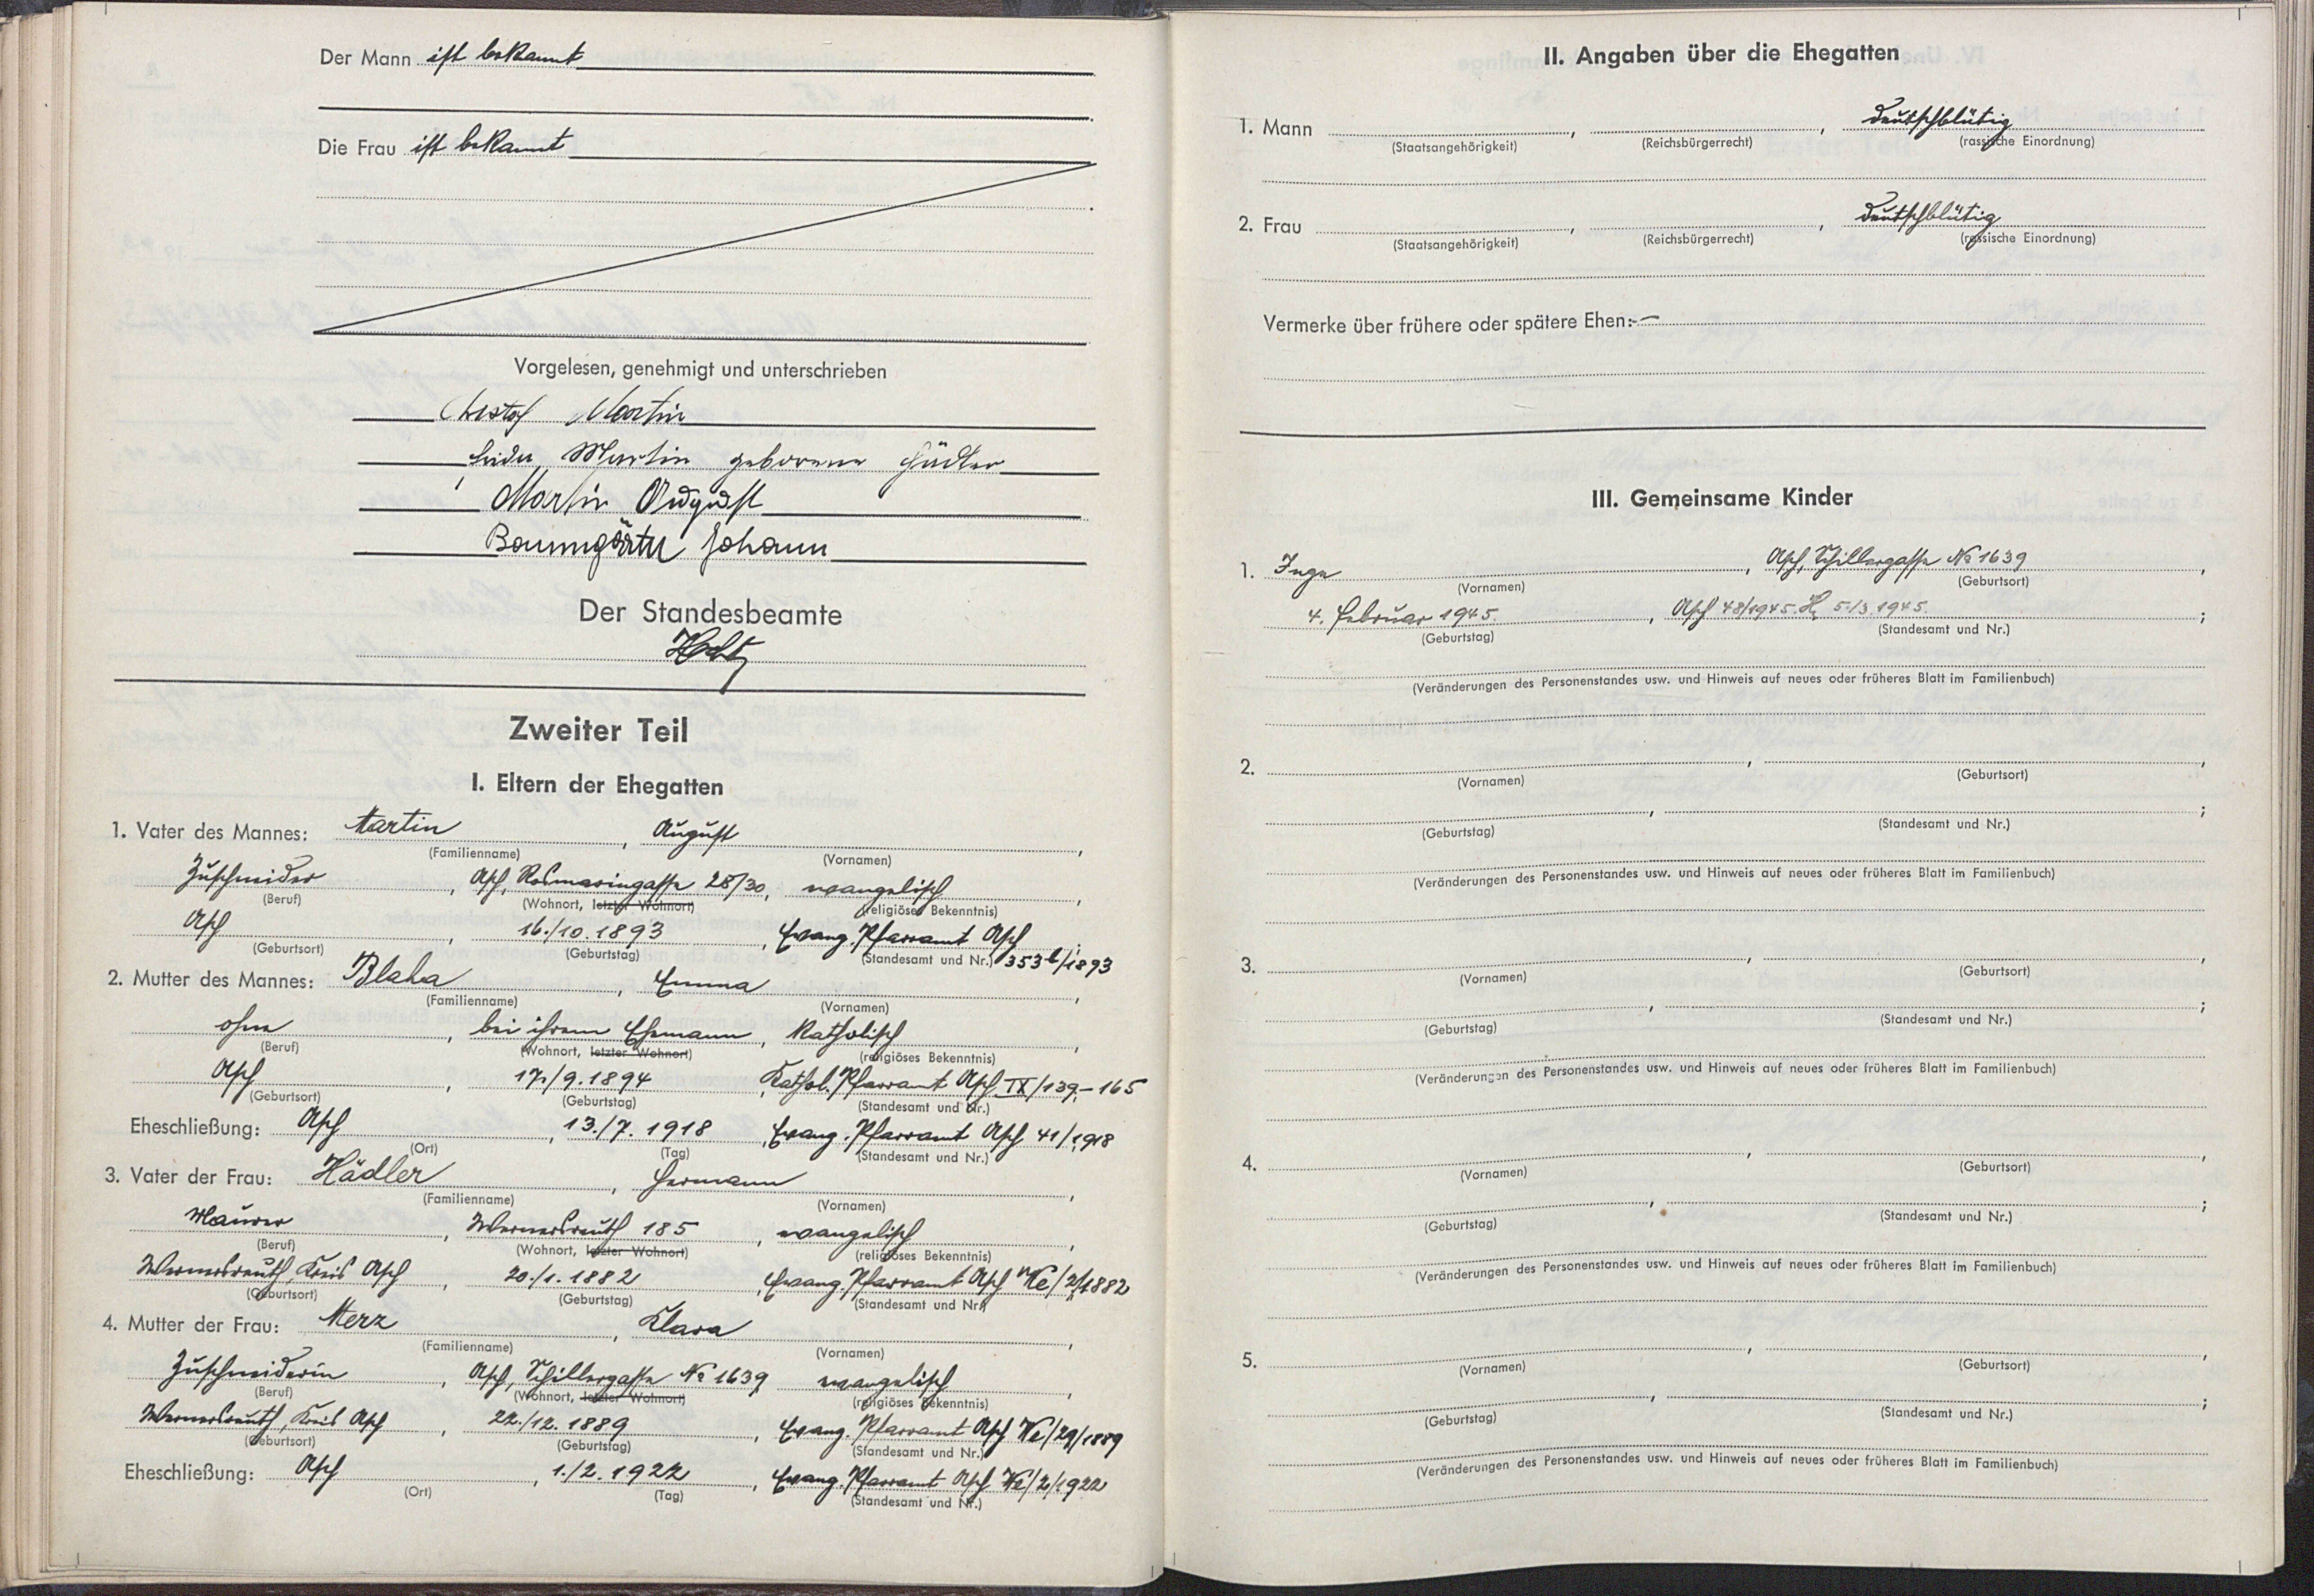 Der Mann ist bekannt
Die Frau ist bekannt
Vorgelesen, genehmigt und unterschrieben
Martin
Martin geborene Hädler
Martin August
Baumgärtel Johann
Der Standesbeamte
Zweiter Teil
I. Eltern der Ehegatten
1. Vater des Mannes: Martin, August,
(Familienname) (Vornamen)
Zuschneider, Asch, Rosmaringasse 28/30, evangelisch,
(Beruf) (Wohnort, letzter Wohnort) (religiöses Bekenntnis)
Asch, 16./10.1893, Evang. Pfarramt Asch;
(Geburtsort) (Geburtstag) (Standesamt und Nr.) 353b/1893
2. Mutter des Mannes: Blaha, Emma,
(Familienname) (Vornamen)
ohne, bei ihrem Ehemann, katholisch,
(Beruf) (Wohnort, letzter Wohnort) (religiöses Bekenntnis)
Asch, 17./9.1894, Kathol. Pfarramt Asch IX/139-165
(Geburtsort) (Geburtstag) (Standesamt und Nr.)
Eheschließung: Asch, 13./7.1918, Evang. Pfarramt Asch 41/1918
(Ort) (Tag) (Standesamt und Nr.)
3. Vater der Frau: Hädler, Hermann,
(Familienname) (Vornamen)
Maurer, Wernersreuth 185, evangelisch,
(Beruf) (Wohnort, letzter Wohnort) (religiöses Bekenntnis)
Wernersreuth, Kreis Asch, 20./1.1882, Evang. Pfarramt Asch We/2/1882
(Geburtsort) (Geburtstag) (Standesamt und Nr.)
4. Mutter der Frau: Merz, Klara,
(Familienname) (Vornamen)
Zuschneiderin, Asch, Schillergasse № 1639 evangelisch,
(Beruf) (Wohnort, letzter Wohnort) (religiöses Bekenntnis)
Wernersreuth, Kreis Asch, 22./12.1889, Evang. Pfarramt Asch We/29/1889
(Geburtsort) (Geburtstag) (Standesamt und Nr.)
Eheschließung: Asch, 1./2.1922, Evang. Pfarramt Asch We/2/1922
(Ort) (Tag) (Standesamt und Nr.)
II. Angaben über die Ehegatten
1. Mann , , deutschblütig
(Staatsangehörigkeit) (Reichsbürgerrecht) (rassische Einordnung)
2. Frau , , deutschblütig
(Staatsangehörigkeit) (Reichsbürgerrecht) (rassische Einordnung)
Vermerke über frühere oder spätere Ehen: —
III. Gemeinsame Kinder
1. Inge, Asch, Schillergasse № 1639,
(Vornamen) (Geburtsort)
4. Februar 1945., Asch 48/1945. 5./3.1945.;
(Geburtstag) (Standesamt und Nr.)
(Veränderungen des Personenstandes usw. und Hinweis auf neues oder früheres Blatt im Familienbuch)
2. , ,
(Vornamen) (Geburtsort)
, ;
(Geburtstag) (Standesamt und Nr.)
(Veränderungen des Personenstandes usw. und Hinweis auf neues oder früheres Blatt im Familienbuch)
3. , ,
(Vornamen) (Geburtsort)
, ;
(Geburtstag) (Standesamt und Nr.)
(Veränderungen des Personenstandes usw. und Hinweis auf neues oder früheres Blatt im Familienbuch)
4. , ,
(Vornamen) (Geburtsort)
, ;
(Geburtstag) (Standesamt und Nr.)
(Veränderungen des Personenstandes usw. und Hinweis auf neues oder früheres Blatt im Familienbuch)
5. , ,
(Vornamen) (Geburtsort)
, ;
(Geburtstag) (Standesamt und Nr.)
(Veränderungen des Personenstandes usw. und Hinweis auf neues oder früheres Blatt im Familienbuch)